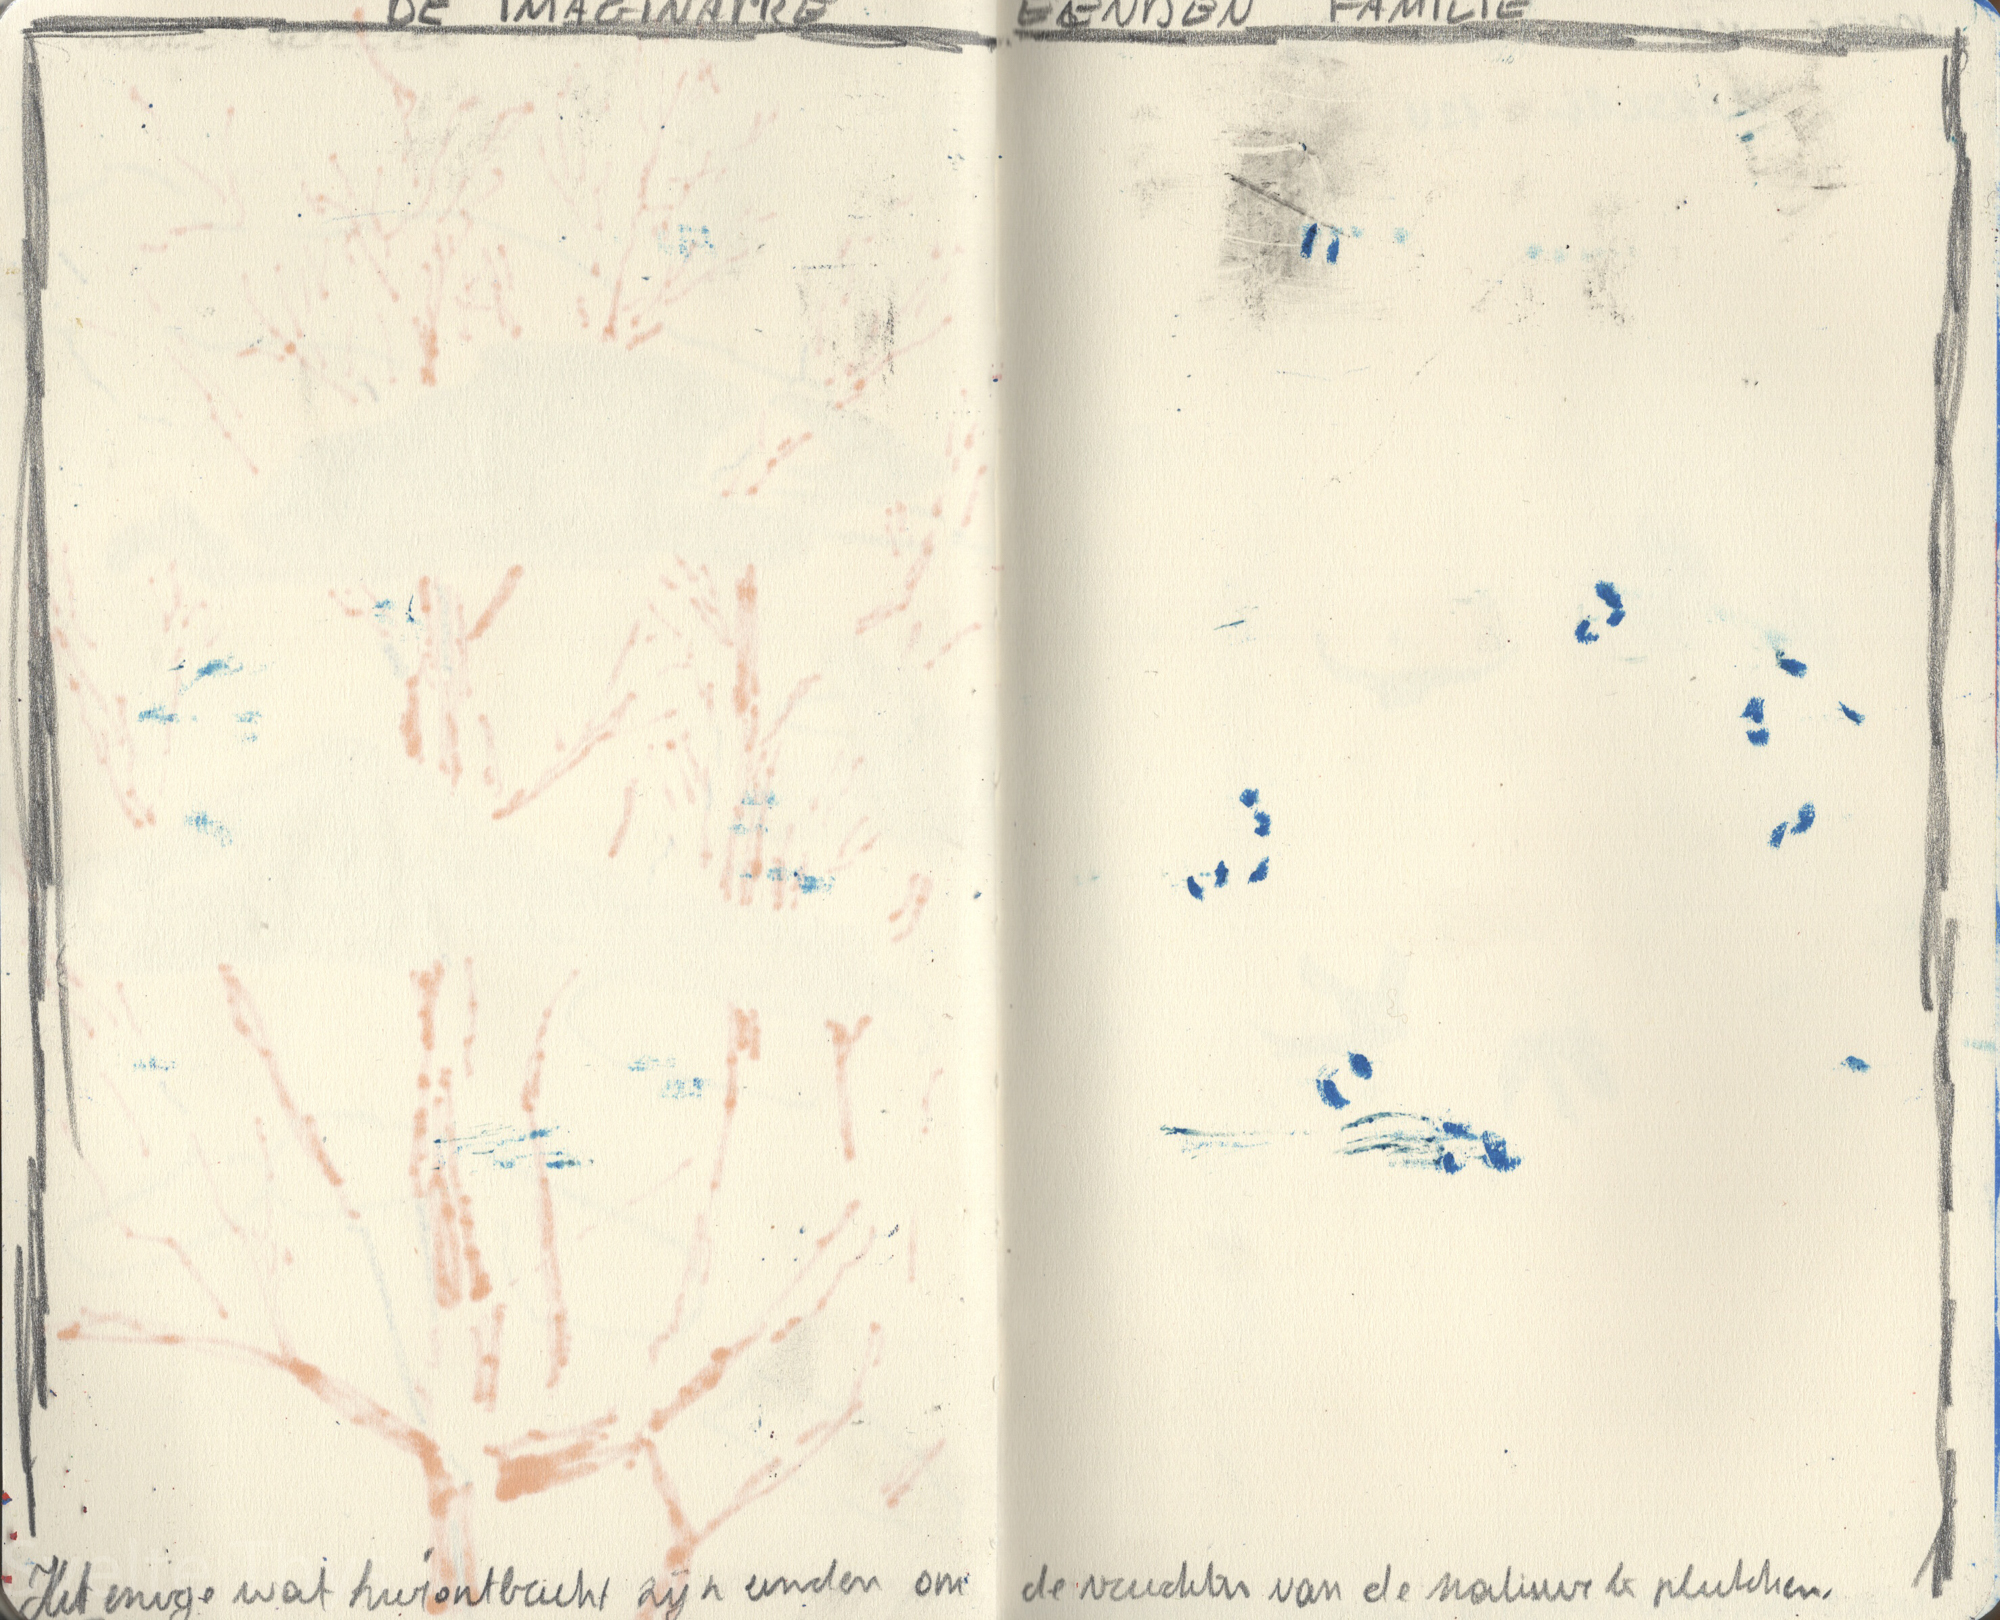 DE IMAGINAIRE EENDEN FAMILIE
Het enige wat hier ontbreekt zijn eenden om de vruchten van de natuur te plukken.